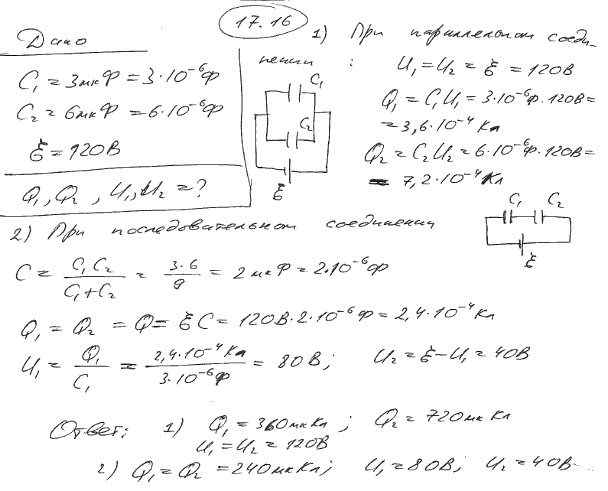 17.16
Дано
C₁ = 3мкФ = 3·10⁻⁶Ф
C₂ = 6мкФ = 6·10⁻⁶Ф
ℰ = 120В
Q₁, Q₂, U₁, U₂ = ?
1) При параллельном соеди-
нении :
C₁
C₂
ℰ
U₁ = U₂ = ℰ = 120В
Q₁ = C₁U₁ = 3·10⁻⁶Ф·120В =
= 3,6·10⁻⁴ Кл
Q₂ = C₂U₂ = 6·10⁻⁶Ф·120В =
= 7,2·10⁻⁴ Кл
2) При последовательном соединении
C₁ C₂
ℰ
C = C₁C₂/(C₁+C₂) = 3·6/9 = 2мкФ = 2·10⁻⁶Ф
Q₁ = Q₂ = Q = ℰC = 120В·2·10⁻⁶Ф = 2,4·10⁻⁴Кл
U₁ = Q₁/C₁ = 2,4·10⁻⁴Кл/3·10⁻⁶Ф = 80В; U₂ = ℰ–U₁ = 40В
Ответ: 1) Q₁ = 360мкКл; Q₂ = 720мкКл
U₁ = U₂ = 120В
2) Q₁ = Q₂ = 240мкКл; U₁ = 80В; U₂ = 40В